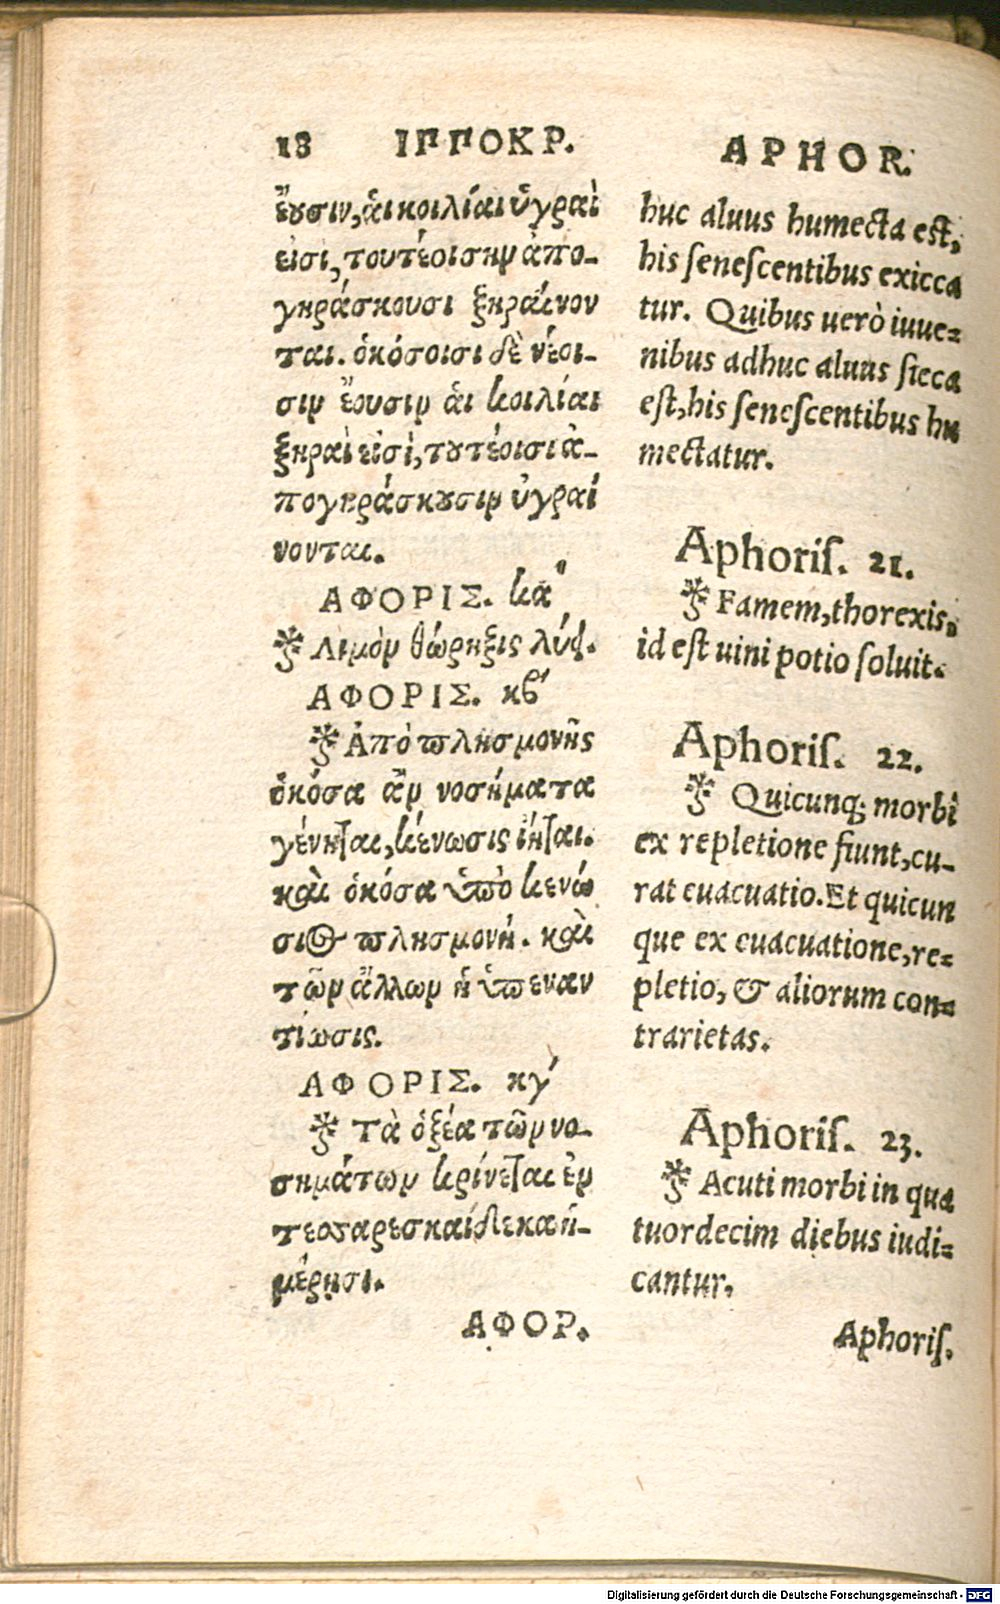 18 ΙΠΠΟΚΡ.
ἔουσιν, ἁι κοιλίαι ὑγραὶ
εἰσι, τουτέοισην ἀπο-
γηράσκουσι ξηραίνον
ται. ὁκόσοισι δὲ νέοι-
σιν ἔουσιν ἁι κοιλίαι
ξηραὶ εἰσὶ, τουτέοισι ἀ-
πογηράσκουσιν ὑγραί
νονται.
ΑΦΟΡΙΣ. κα"
Λιμὸν θώρηξις λύει.
ΑΦΟΡΙΣ. κβ'
Ἀπὸ πλησμονῆς
ὁκόσα ἂν νοσήματα
γένηται, κένωσις ἰῆται.
καὶ ὁκόσα ὑπὸ κενώ
σιος πλησμονή. καὶ
τῶν ἄλλων ἡ ὑπεναν
τίωσις.
ΑΦΟΡΙΣ. κγ'
Τὰ ὀξέα τῶν νο-
σημάτων κρίνεται ἐν
τεσσαρεσκαίδεκα ἡ-
μέρησι.
ΑΦΟΡ.
APHOR.
huc aluus humecta est,
his senescentibus exicca
tur. Quibus uerò iuue=
nibus adhuc aluus sicca
est, his senescentibus hu
mectatur.
Aphoris. 21.
Famem, thorexis,
id est uini potio soluit.
Aphoris. 22.
Quicunq; morbi
ex repletione fiunt, cu-
rat euacuatio. Et quicun
que ex euacuatione, re=
pletio, & aliorum con=
trarietas.
Aphoris. 23.
Acuti morbi in qua
tuordecim diebus iudi=
cantur.
Aphoris.
Digitalisierung gefördert durch die Deutsche Forschungsgemeinschaft - DFG